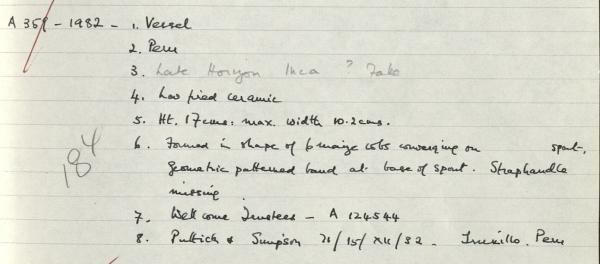 A 359 - 1982 - 1. Vessel
2. Peru
3. Late Horizon Inca ? Fake
4. Low fired ceramic
5. Ht. 17cms. max. width 10.2cms.
6. Formed in shape of 6 maize cobs converging on spout.
Geometric patterned band at base of spout. Straphandle
missing.
184
7. Wellcome Trustees - A 124544
8. Puttick & Simpson 21/15/XII/32. Truxillo. Peru